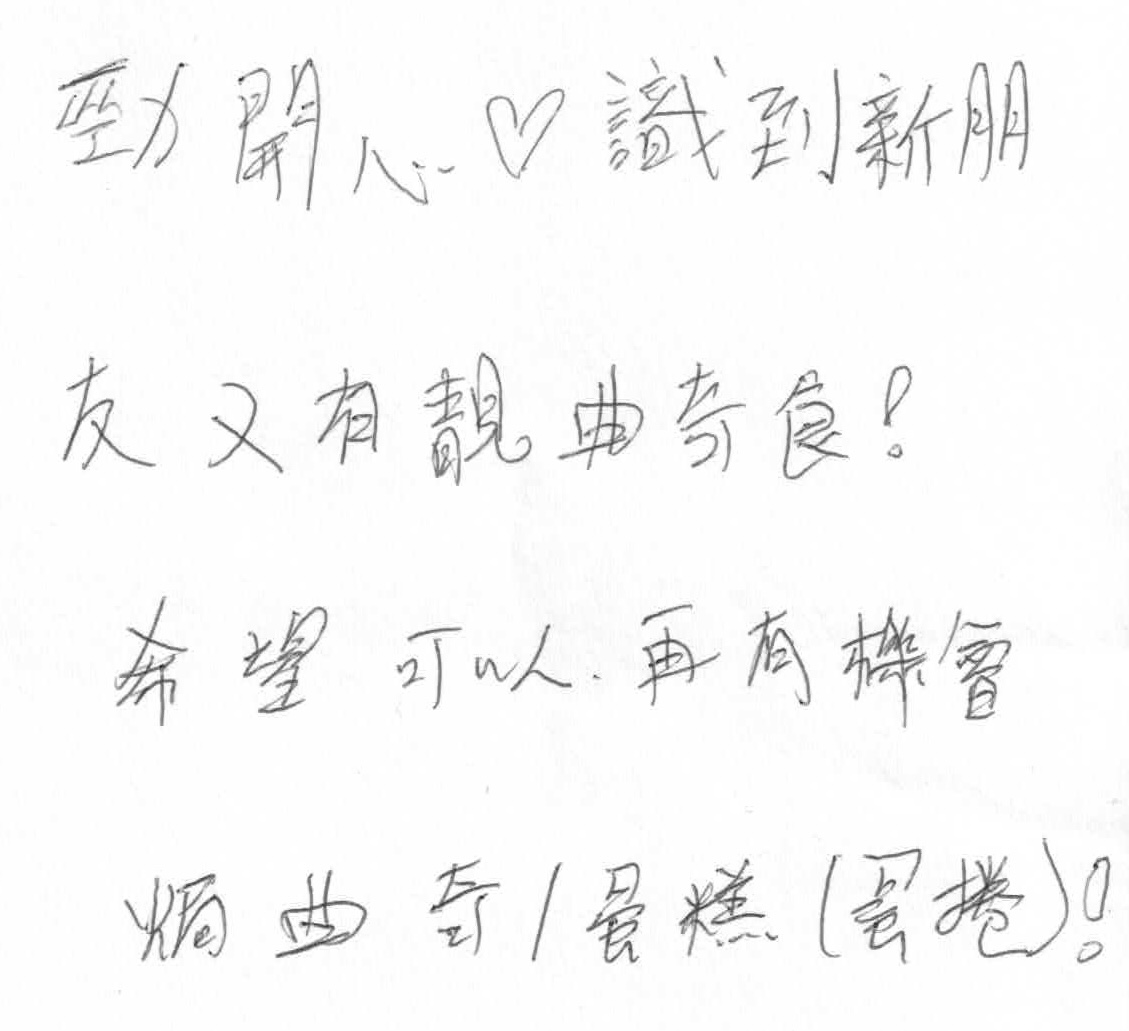 勁開心♡識到新朋
友又有靚曲奇食!
希望可以再有機會
焗曲奇/蛋糕(蛋捲)!